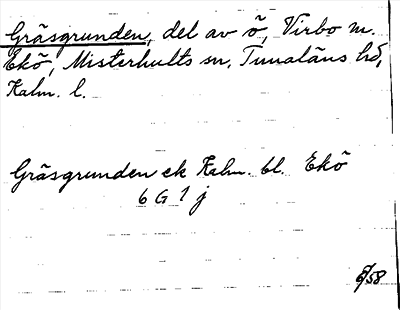 Gräsgrunden, del av ö, Virbo m.
Ekö, Misterhults sn, Tunaläns hd,
Kalm. l.
Gräsgrunden ek Kalm. bl. Ekö
6 G 1 j
58